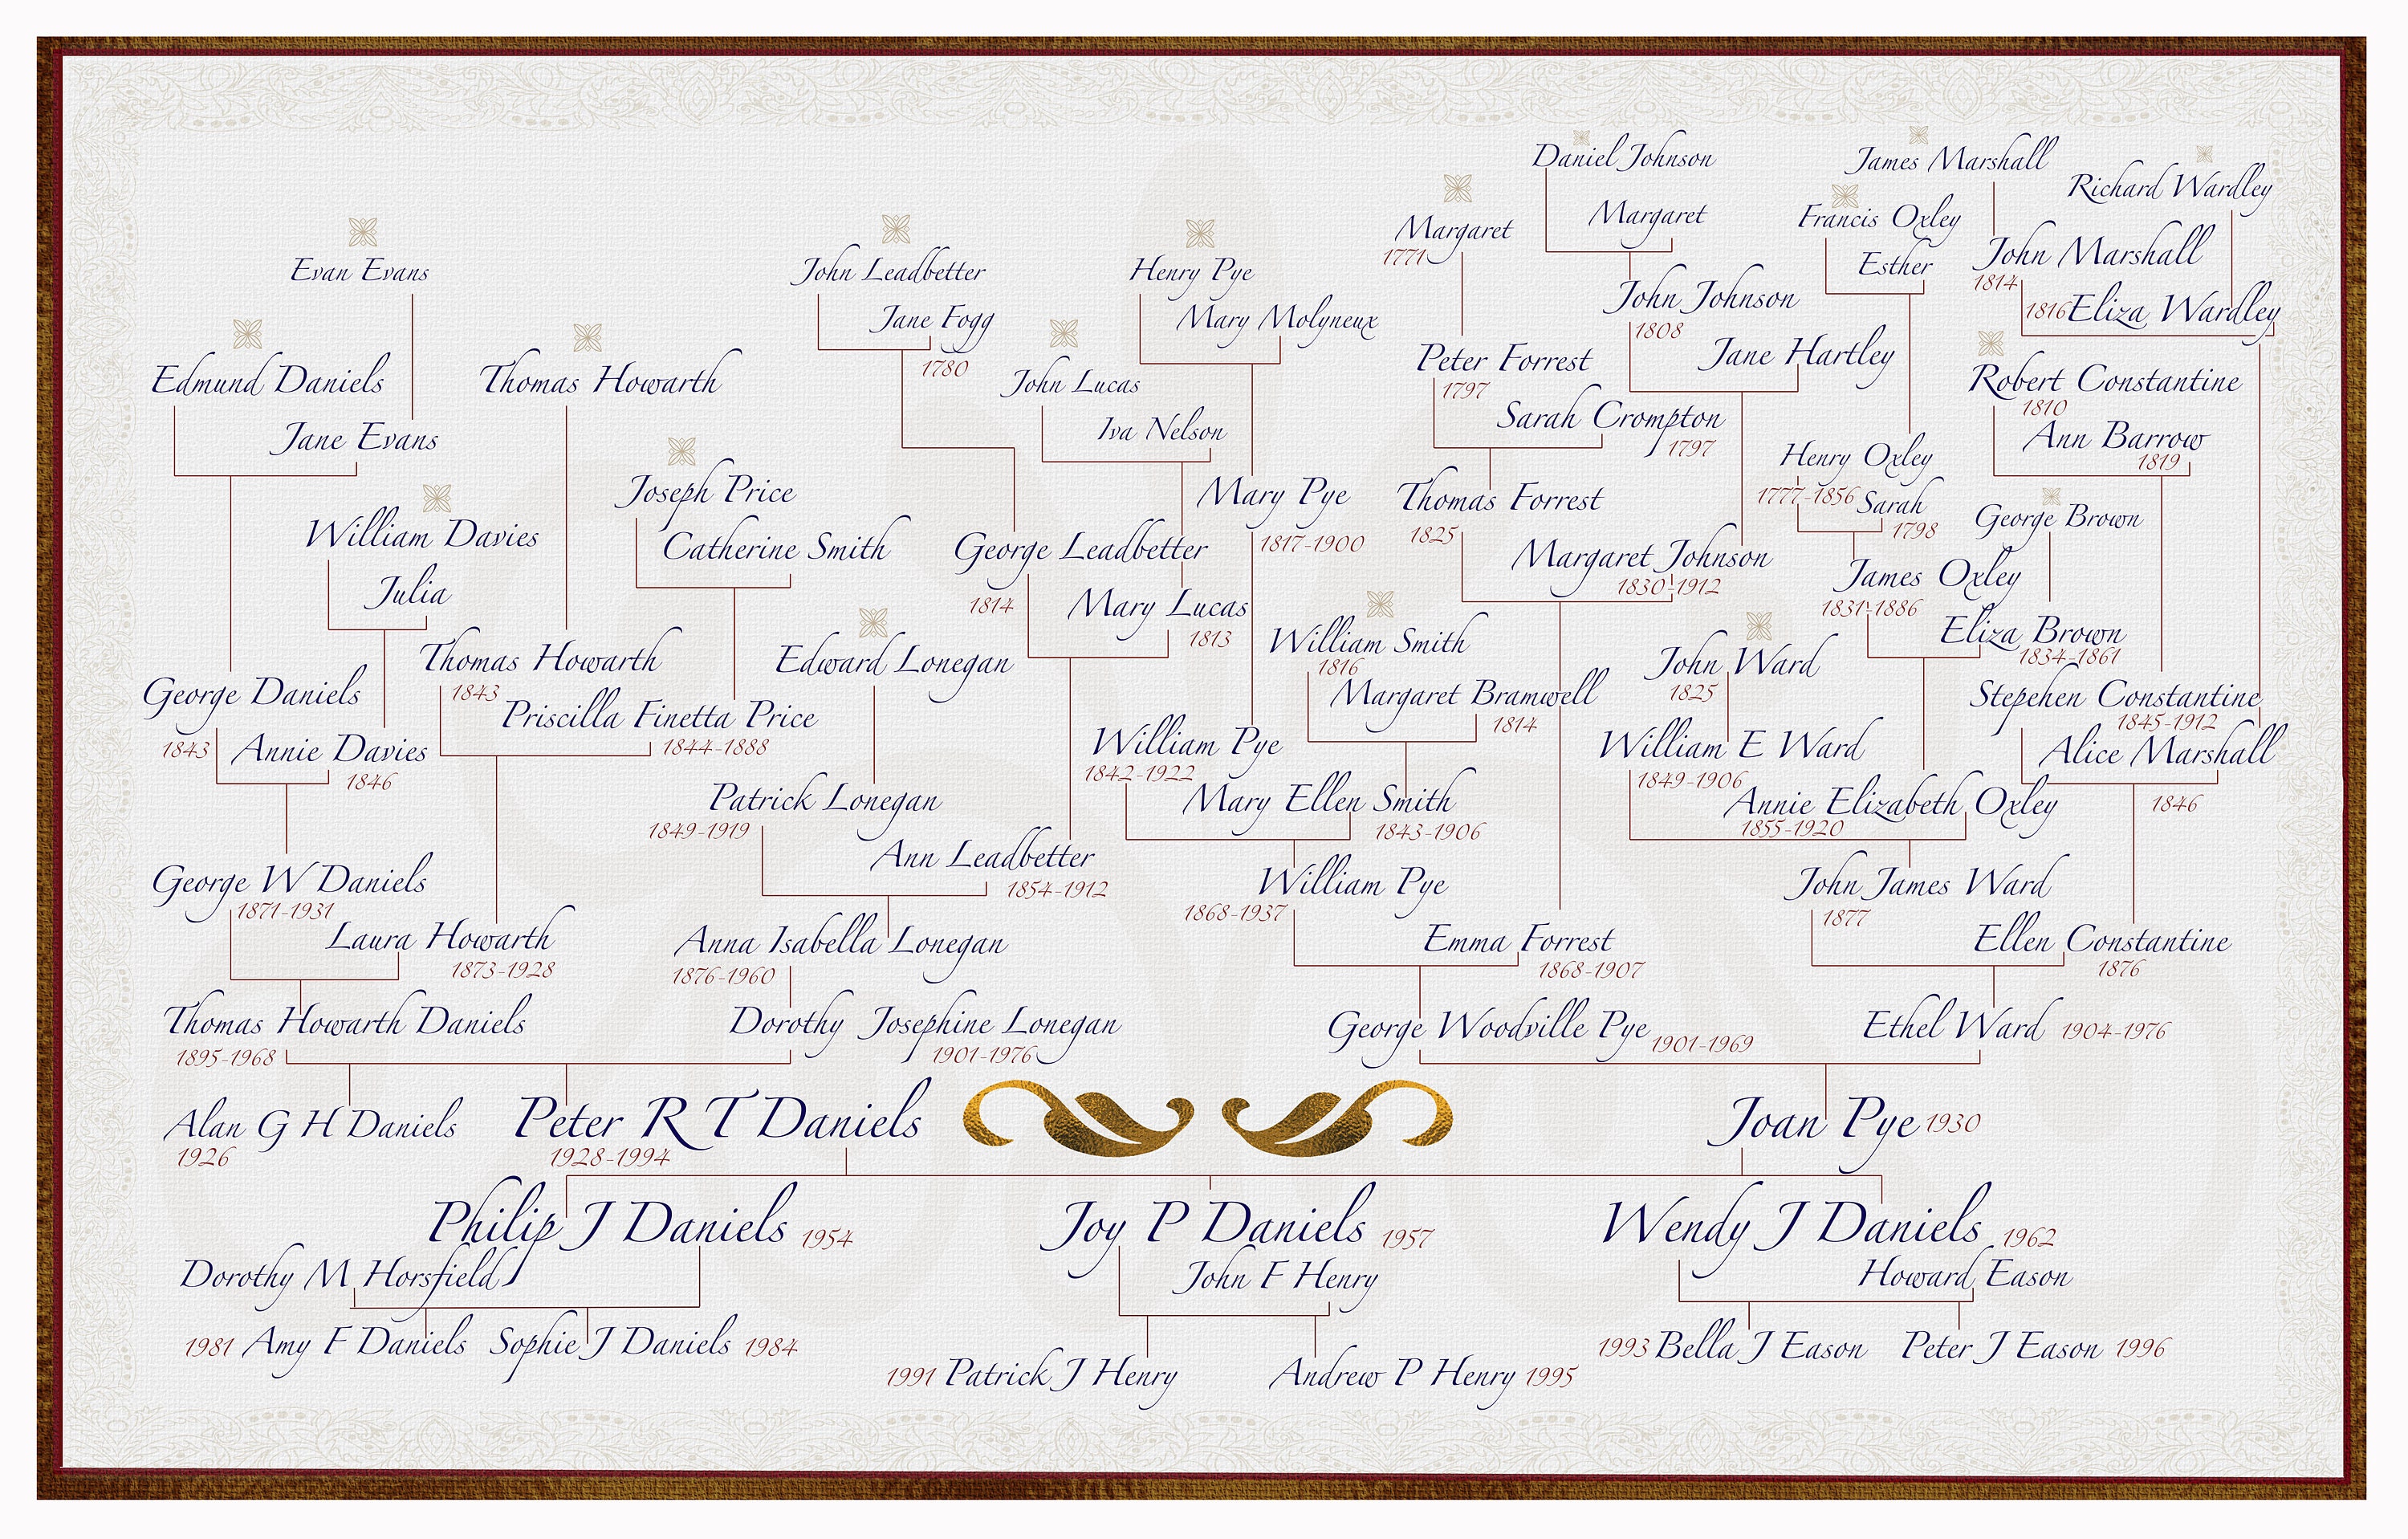 Daniel Johnson
James Marshall
Richard Wardley
Margaret
1771
Margaret
Francis Oxley
Esther
John Marshall
1814
1816 Eliza Wardley
Evan Evans
John Leadbetter
Jane Fogg
1780
Henry Pye
Mary Molyneux
John Johnson
1808
Jane Hartley
Edmund Daniels
Jane Evans
Thomas Howarth
John Lucas
Iva Nelson
Peter Forrest
1797
Sarah Crompton
1797
Robert Constantine
1810
Ann Barrow
1819
Joseph Price
Catherine Smith
Mary Pye
1817-1900
Thomas Forrest
1825
Margaret Johnson
1830-1912
Henry Oxley
1777-1856
Sarah
1798
George Brown
William Davies
Julia
George Leadbetter
1814
Mary Lucas
1813
James Oxley
1831-1886
Eliza Brown
1834-1861
George Daniels
1843
Annie Davies
1846
Thomas Howarth
1843
Priscilla Finetta Price
1844-1888
Edward Lonegan
William Smith
1816
Margaret Bramwell
1814
John Ward
1825
Stepehen Constantine
1845-1912
Alice Marshall
1846
Patrick Lonegan
1849-1919
Ann Leadbetter
1854-1912
William Pye
1842-1922
Mary Ellen Smith
1843-1906
William E Ward
1849-1906
Annie Elizabeth Oxley
1855-1920
George W Daniels
1871-1931
Laura Howarth
1873-1928
Anna Isabella Lonegan
1876-1960
William Pye
1868-1937
Emma Forrest
1868-1907
John James Ward
1877
Ellen Constantine
1876
Thomas Howarth Daniels
1895-1968
Dorothy Josephine Lonegan
1901-1976
George Woodville Pye 1901-1969
Ethel Ward 1904-1976
Alan G H Daniels
1926
Peter R T Daniels
1928-1994
Joan Pye 1930
Philip J Daniels 1954
Dorothy M Horsfield
Joy P Daniels 1957
John F Henry
Wendy J Daniels 1962
Howard Eason
1981 Amy F Daniels
Sophie J Daniels 1984
1991 Patrick J Henry
Andrew P Henry 1995
1993 Bella J Eason
Peter J Eason 1996